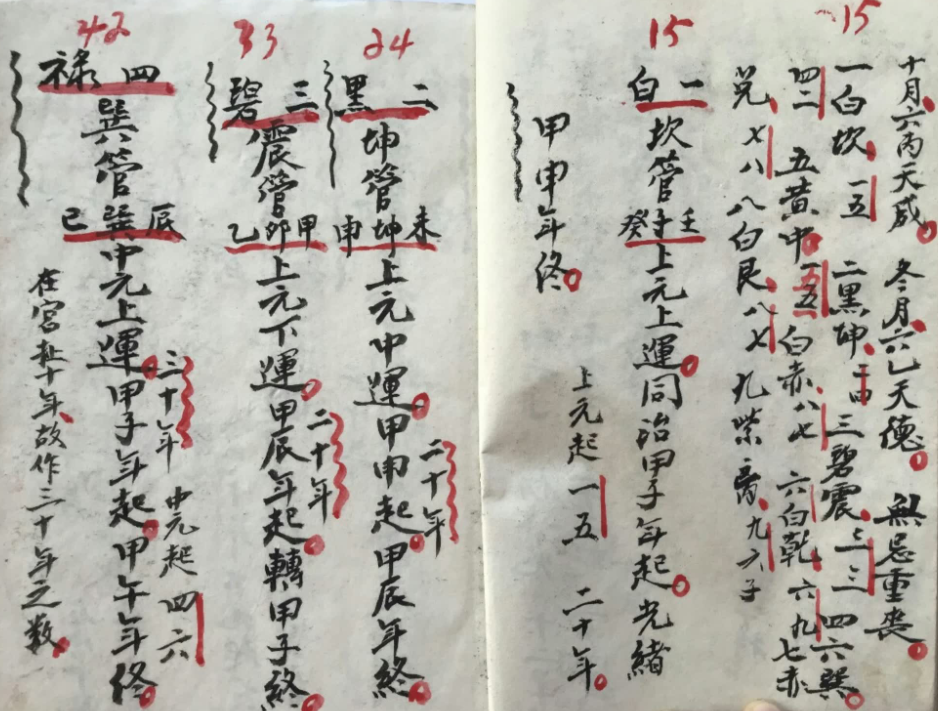 15
十月六丙天成 冬月六已天德 無忌重喪
一白坎 一五 二黑坤 三碧震 三三 四六巽
四二 五黄中 一五 白赤 八七 六白乾 六九 七赤
兌 七八 八白艮 八七 九紫离 九六子
15
一白坎管壬子癸上元上運同治甲子年起光緒
甲申年终
上元起 一五 二十年
24
二黑坤管未坤申上元中運甲申起甲辰年終
二十年
33
三碧震管甲卯乙上元下運甲辰年起轉甲子終
二十年
42
四禄巽管辰巽巳中元上運甲子年起甲午年终
三十年 中元起 四六
在宫赴十年故作三十年之数